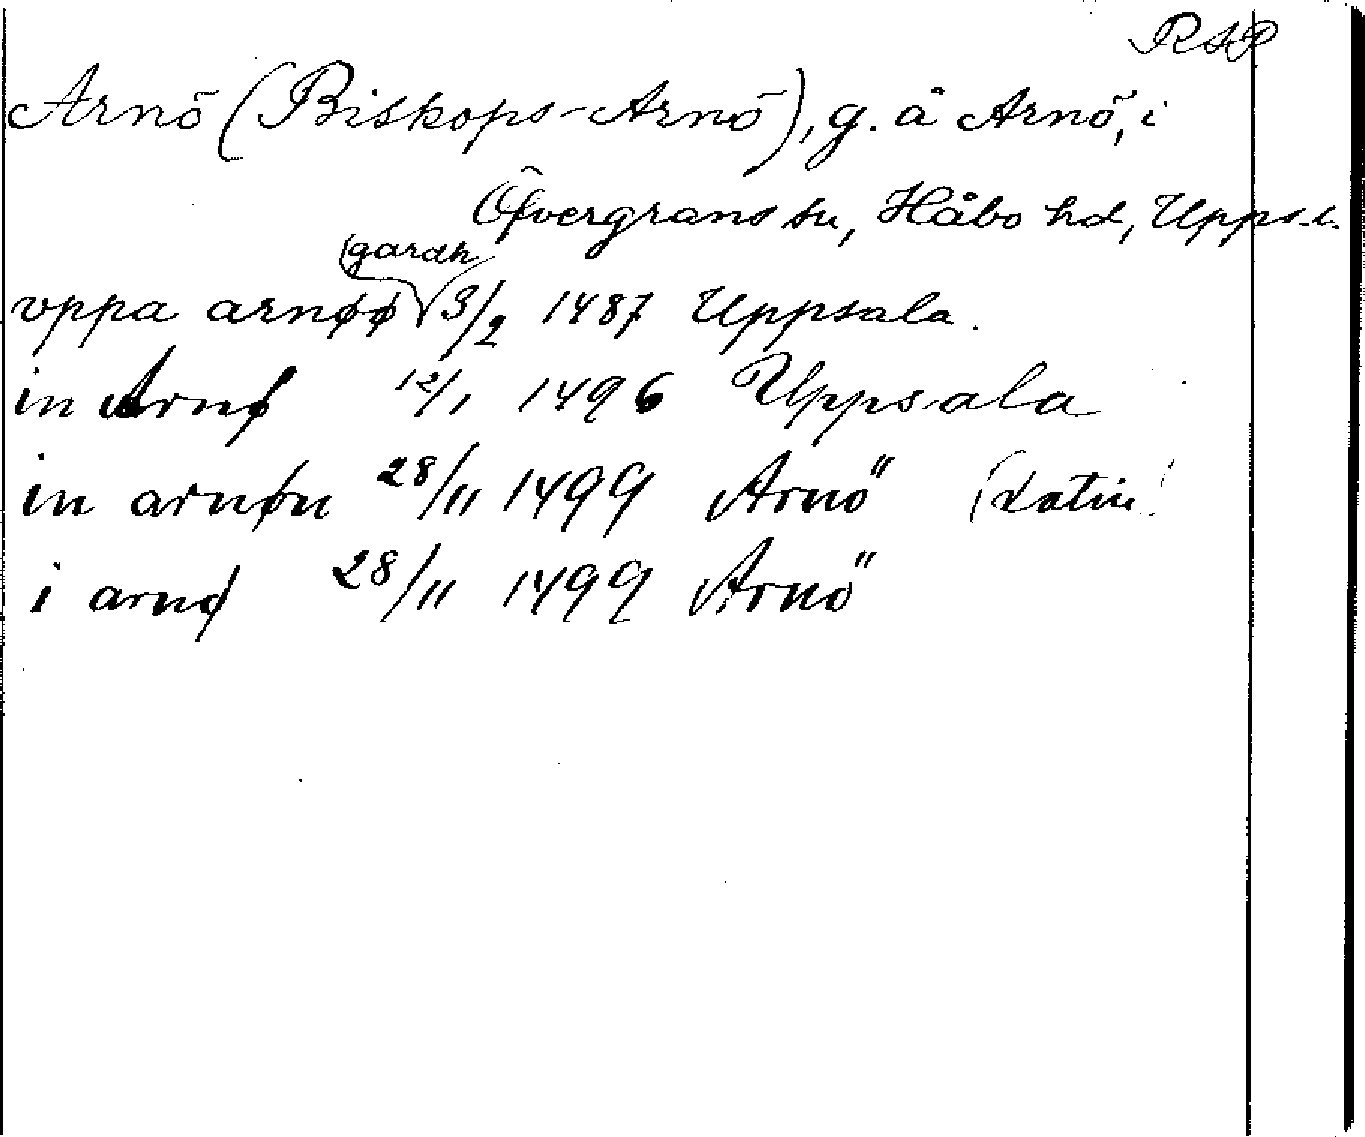 RAP
Arnö (Biskops-Arnö), g. å Arnö, i
Öfvergrans sn, Håbo hd, Upps. l.
vppa arnøø (gardh) 3/2 1487 Uppsala.
in Arnø 12/1 1496 Uppsala
in arnøn 28/11 1499 Arnö (latin)
i arnø 28/11 1499 Arnö